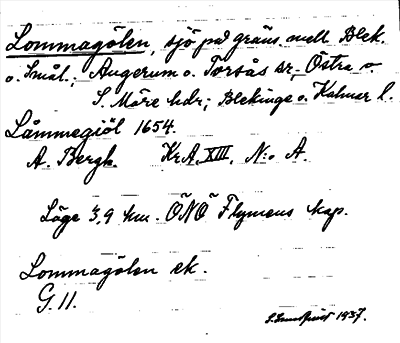 Lommagölen, sjö på gräns mell. Blek.
o. Smål.; Augerum o. Torsås sr; Östra o.
S. Möre hdr; Blekinge o. Kalmar l.
Låmmegiöl 1654.
A. Bergh. Kr.A. XIII, N:o A.
Läge 3,9 km. ÖNÖ Flymens kap.
Lommagölen ek.
G. 11.
S. Lundquist 1937.